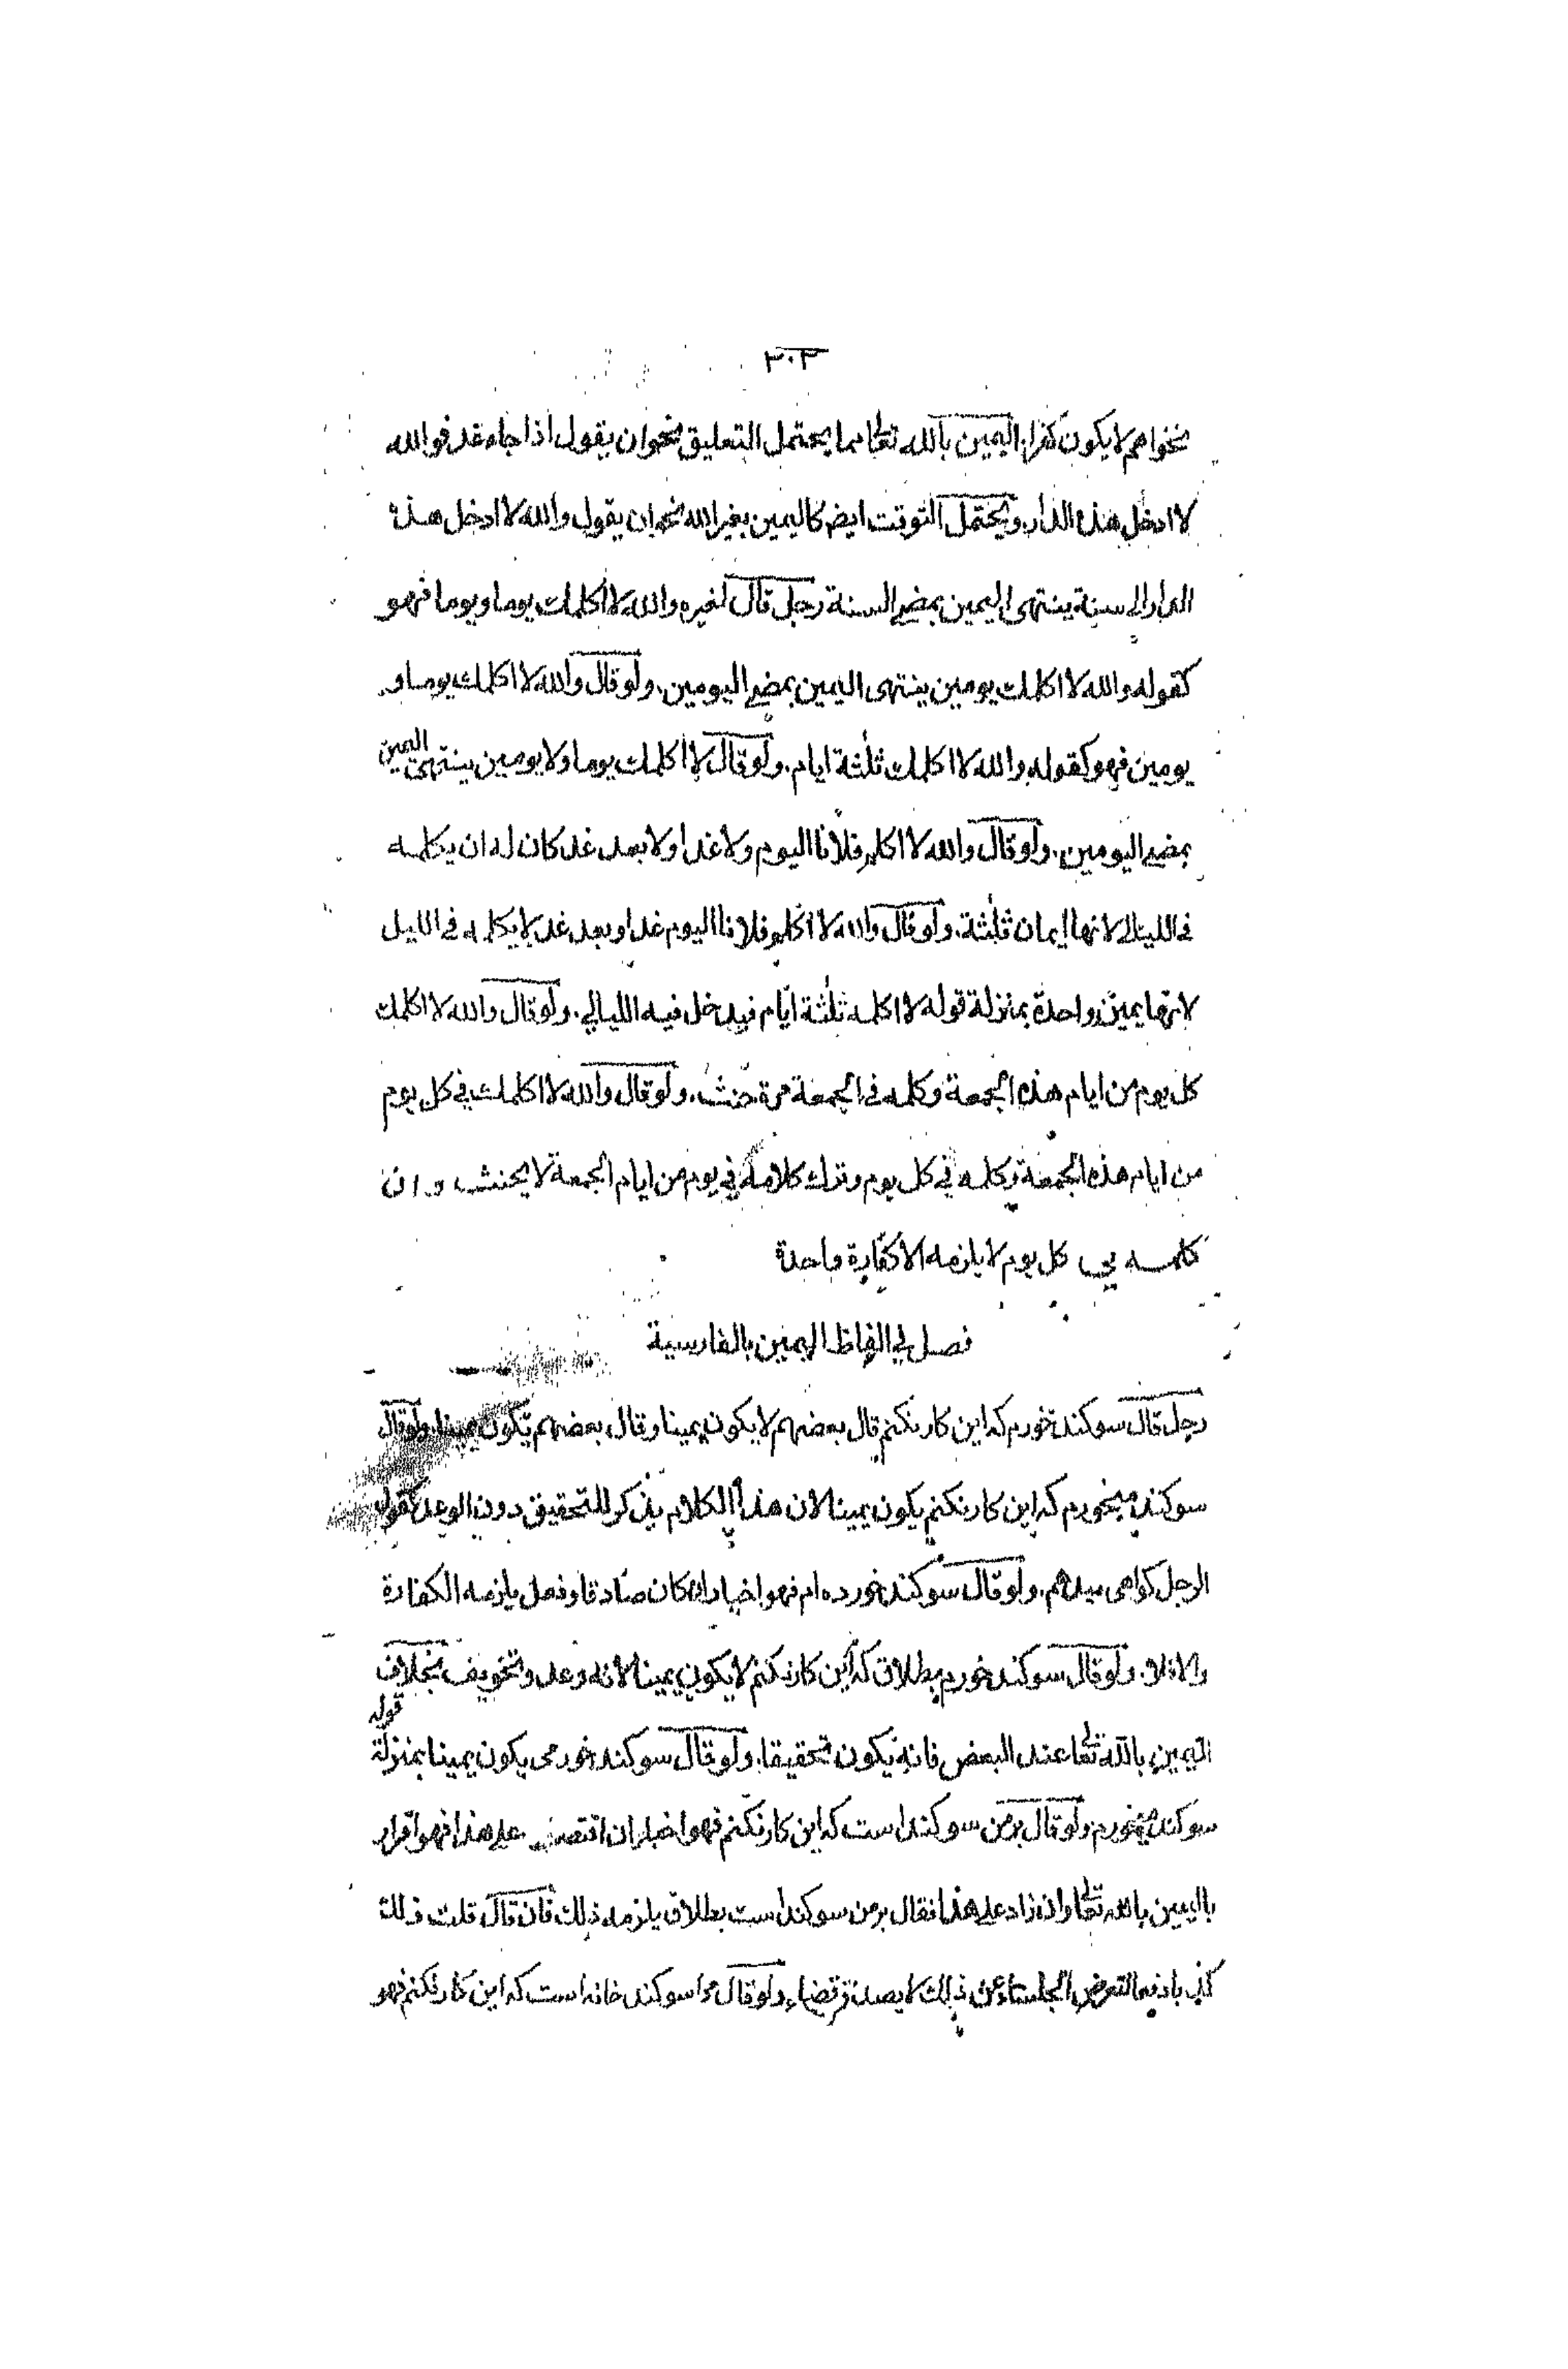 ٣٠٣
نخواهم لا يكون كفرا. اليمين بالله تعالى مما يحتمل التعليق نحو ان يقول اذا جاء غد فوالله
لا ادخل هذه الدار. ويحتمل التوقت ايض كاليمين بغير الله نحو ان يقول والله لا ادخل هذه
الدار الى سنة ينتهى اليمين بمضى السنة رجل قال لغيره والله لا اكلمك يوما ويوما فهو
كقوله والله لا اكلمك يومين ينتهى اليمين بمضى اليومين. ولو قال والله لا اكلمك يوما و
يومين فهو كقوله والله لا اكلمك ثلثة ايام. ولو قال لا اكلمك يوما ولا يومين ينتهى اليمين
بمضى اليومين. ولو قال والله لا اكلم فلانا اليوم ولا غدا ولا بعد غد كان له ان يكلمه
فى الليالى لانها ايمان ثلثة. ولو قال والله لا اكلم فلانا اليوم غدا وبعد غد لا يكلمه فى الليل
لانها يمين واحدة بمنزلة قوله لا اكلمه ثلثة ايّام فيدخل فيه الليالي. ولو قال والله لا اكلمك
كل يوم من ايام هذه الجمعة وكلمه فى الجمعة مرة حنث. ولو قال والله لا اكلمك في كل يوم
من ايام هذه الجمعة وكلمه في كل يوم وترك كلامه في يوم من ايام الجمعة لا يحنث وان
كلمه في كل يوم لا يلزمه الا كفارة واحدة
فصل في الفاظ اليمين بالفارسية
رجل قال سوكند خورم كه اين كار نكنم قال بعضهم لا يكون يمينا وقال بعضهم يكون يمينا. ولو قال
سوكند ميخورم كه اين كار نكنم يكون يمينا لان هذا الكلام يذكر للتحقيق دون الوعد كقول
الرجل كواهى ميدهم. ولو قال سوكند خورده ام فهو اخبار ان كان صادقا وفعل يلزمه الكفارة
والا فلا. ولو قال سوكند خورم بطلاق كه اين كار نكنم لا يكون يمينا لانه وعد وتخويف بخلاف
اليمين بالله تعالى عند البعض فانه يكون تحقيقا. ولو قال سوكند خورمى يكون يمينا بمنزلة قوله
سوكند ميخورم ولو قال برمن سوكند است كه اين كار نكنم فهو اخبار ان اقتصر على هذا فهو اقرار
باليمين بالله تعالى وان زاد على هذا فقال برمن سوكند است بطلاق يلزمه ذلك فان قال قلت ذلك
كذبا دفعا لتعرض الجلساء عن ذلك لا يصدق قضاء. ولو قال مرا سوكند خانه است كه اين كار نكنم فهو